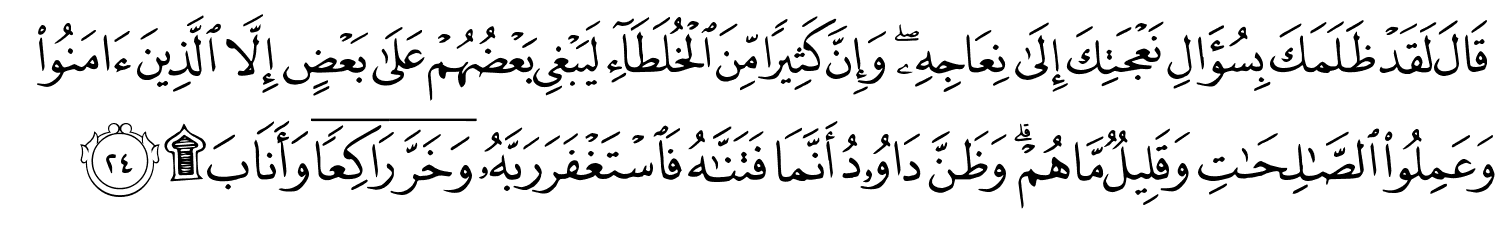 قَالَ لَقَدۡ ظَلَمَكَ بِسُؤَالِ نَعۡجَتِكَ إِلَىٰ نِعَاجِهِۦۖ وَإِنَّ كَثِيرٗا مِّنَ ٱلۡخُلَطَآءِ لَيَبۡغِي بَعۡضُهُمۡ عَلَىٰ بَعۡضٍ إِلَّا ٱلَّذِينَ ءَامَنُواْ
وَعَمِلُواْ ٱلصَّٰلِحَٰتِ وَقَلِيلٞ مَّا هُمۡۗ وَظَنَّ دَاوُۥدُ أَنَّمَا فَتَنَّٰهُ فَٱسۡتَغۡفَرَ رَبَّهُۥ وَخَرَّۤ رَاكِعٗاۤ وَأَنَابَ ۩ ٢٤